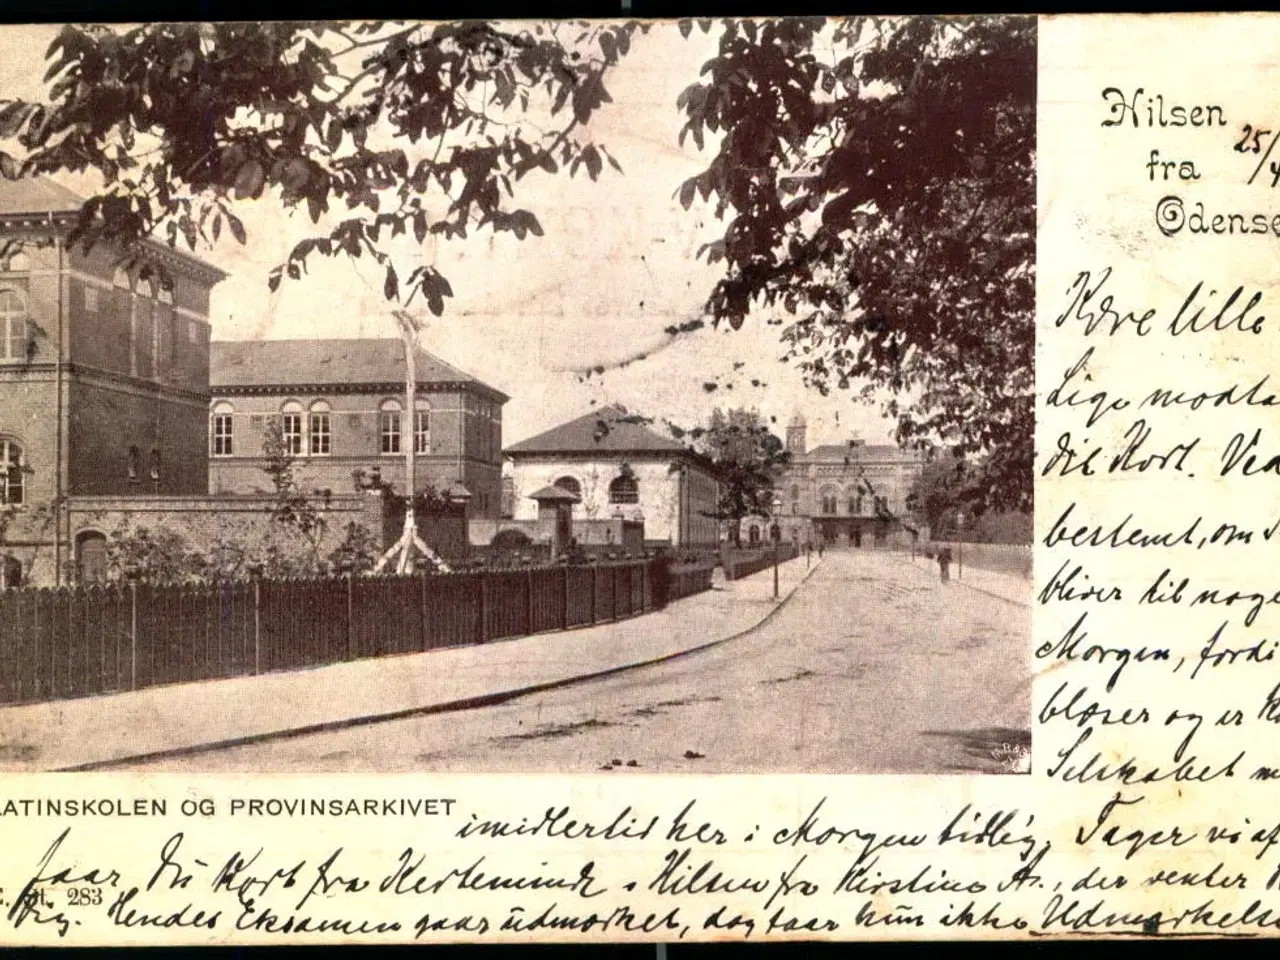 Hilsen
fra 25/4
Odense
Kære lille
Lige modta
dit Kort. Ved
bestemt, om
bliver til noge
Morgen, fordi
blæser og er
Selskabet
LATINSKOLEN OG PROVINSARKIVET
imidlertid her i Morgen tidlig. Tager vi af
faar Du Kort fra Kerteminde. Hilsen fra Kirstine A., der venter
283
Hendes Eksamen gaar udmærket, dog faar hun ikke Udmærkelse